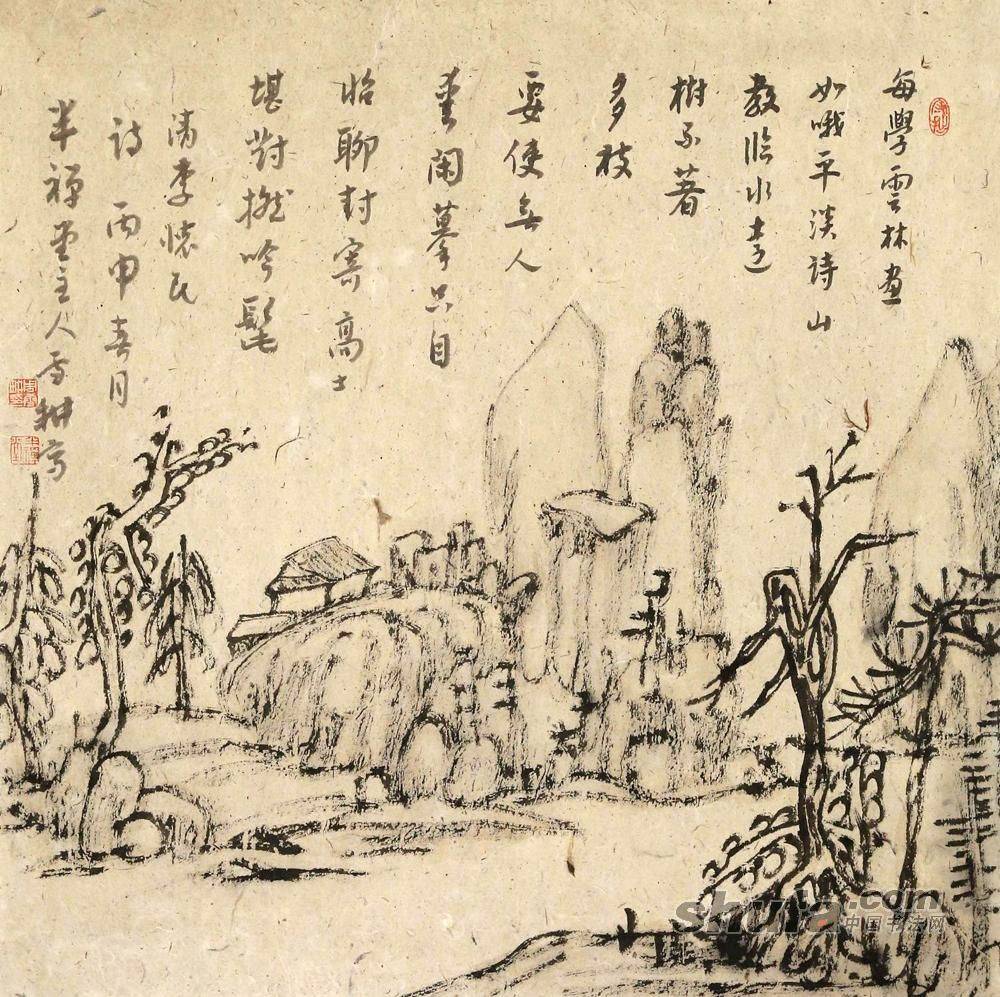 每學雲林畫
如哦平淡詩山
教臨水遠
樹不著
多枝
要使無人
愛閑摹只自
怡聊封寄高士
堪對撚吟髭
清李懷民
詩丙申春月
半禪堂主人雪耕寫
shufa.com
中国书法网